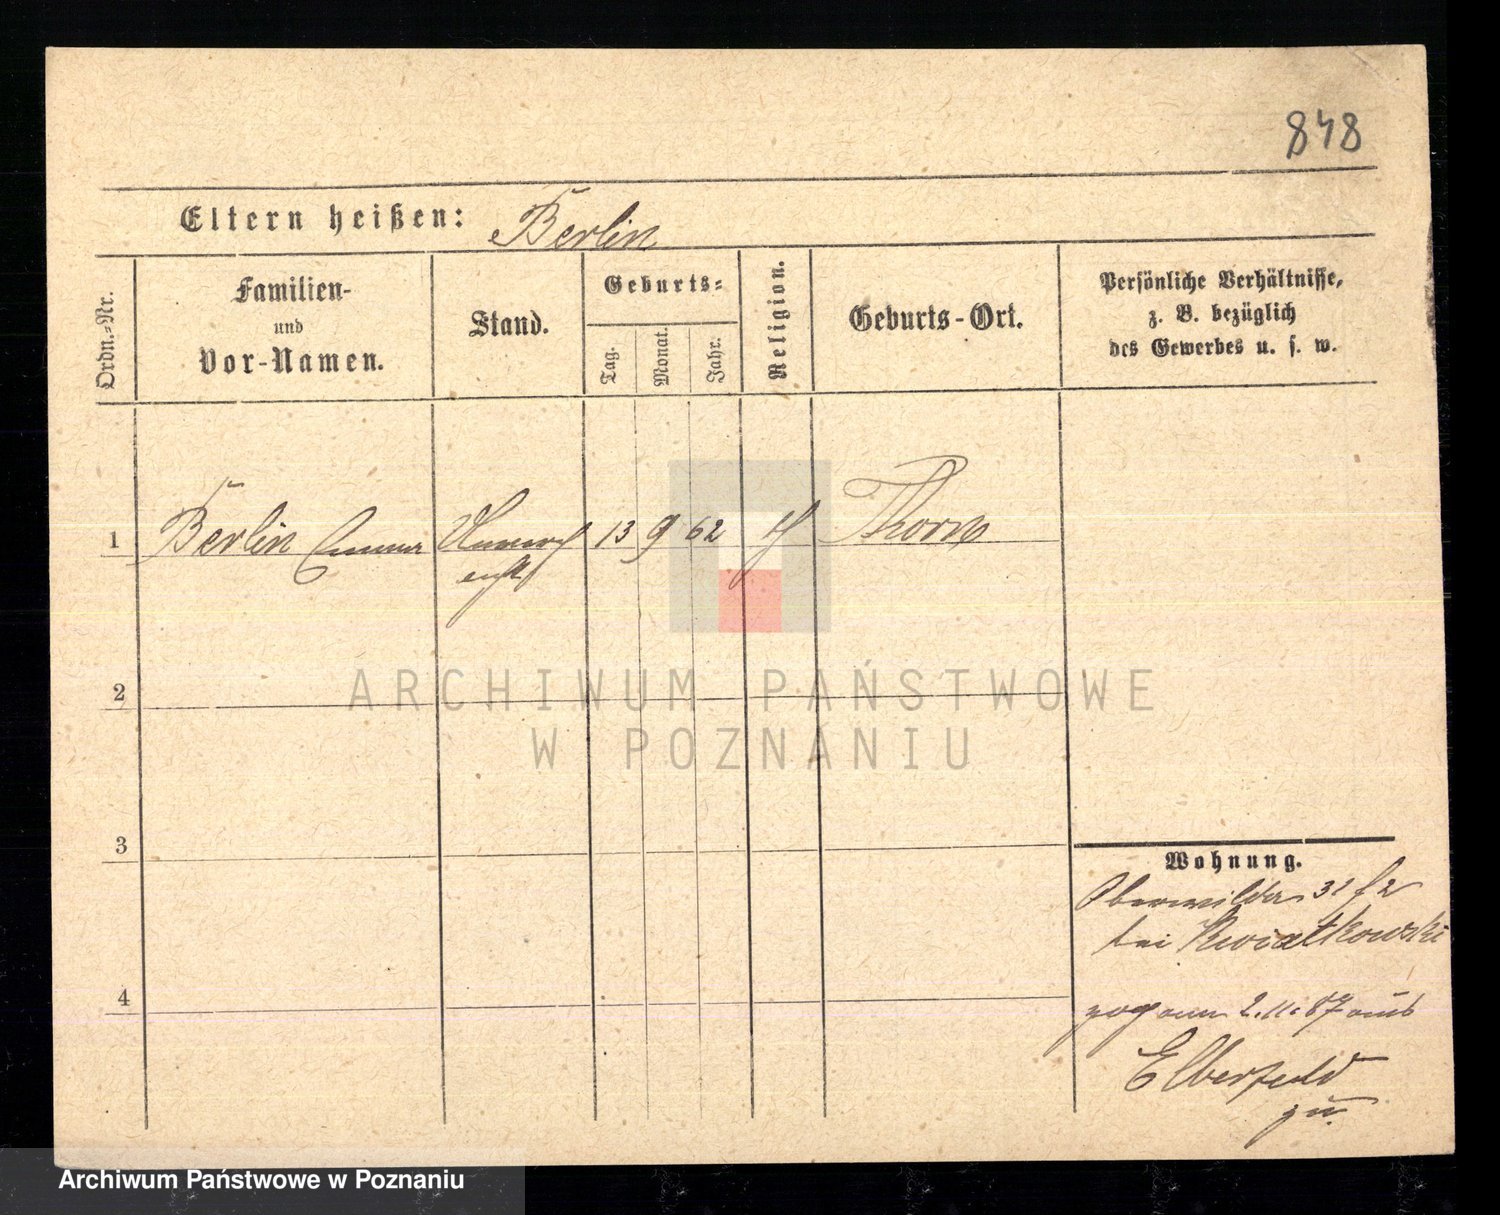 848
Eltern heißen: Berlin
Ordn.=Nr.
Familien-
und
Vor-Namen.
Stand.
Geburts=
Tag.
Monat.
Jahr.
Religion.
Geburts-Ort.
Persönliche Verhältnisse,
z. B. bezüglich
des Gewerbes u. s. w.
1 Berlin Emma Unverehelicht 13 9 62 Thorn
2
3
4
Wohnung.
Oberwilda 31 f 2
bei Kwiatkowski
zog am 2.11.87 aus
Elberfeld
zu.
ARCHIWUM PAŃSTWOWE
W POZNANIU
Archiwum Państwowe w Poznaniu